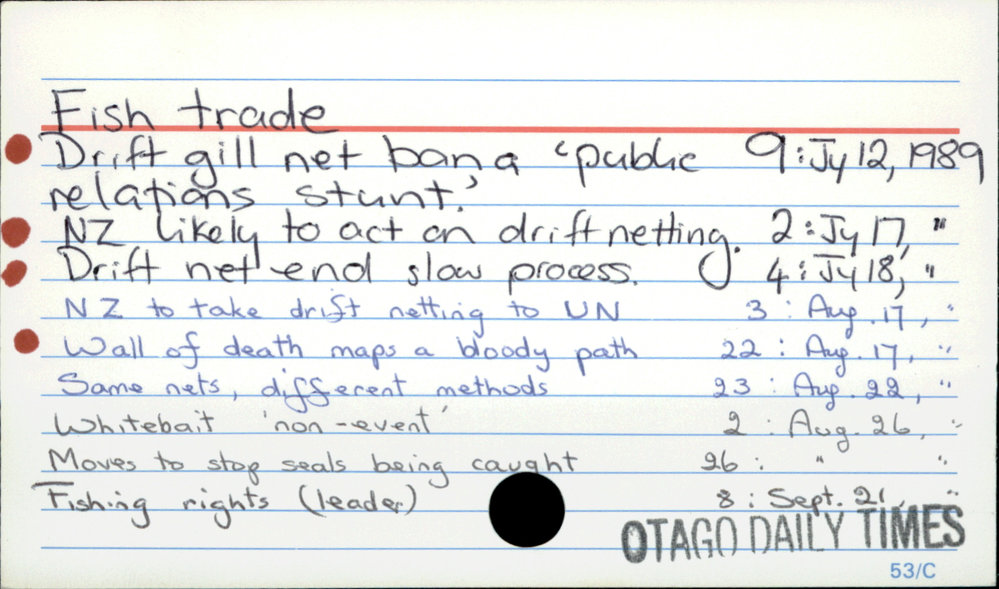 Fish trade
Drift gill net ban a 'public 9 : Jy 12, 1989
relations stunt.'
NZ likely to act on driftnetting. 2 : Jy 17, "
Drift net end slow process. 4 : Jy 18, "
NZ to take drift netting to UN 3 : Aug. 17, "
Wall of death maps a bloody path 22 : Aug. 17, "
Same nets, different methods 23 : Aug. 22, "
Whitebait 'non-event' 2 : Aug. 26, "
Moves to stop seals being caught 26 : " "
Fishing rights (leader) 8 : Sept. 21, "
OTAGO DAILY TIMES
53/C